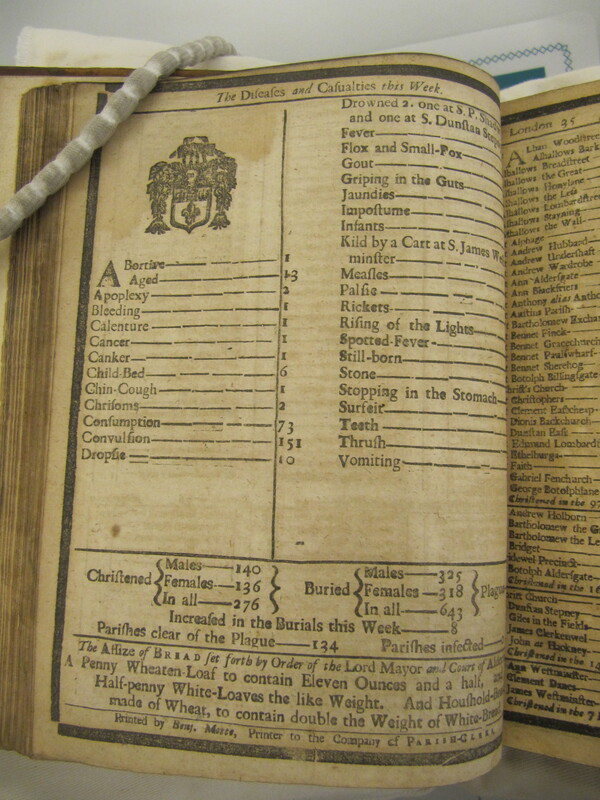 The Diseaſes and Caſualties this Week.
Abortive 1
Aged 13
Apoplexy 2
Bleeding 1
Calenture 1
Cancer 1
Canker 1
Child-Bed 6
Chin-Cough 1
Chriſoms 2
Conſumption 73
Convulſion 151
Dropſie 10
Drowned 2. one at S. P.
and one at S. Dunſtan
Fever
Flox and Small-Pox
Gout
Griping in the Guts
Jaundies
Impoſtume
Infants
Kild by a Cart at S. James
minſter
Meaſles
Palſie
Rickets
Riſing of the Lights
Spotted-Fever
Still-born
Stone
Stopping in the Stomach
Surfeit
Teeth
Thruſh
Vomiting
Chriſtened { Males—140 Females—136 In all—276 }
Buried { Males—325 Females—318 In all—643 } Plague
Increaſed in the Burials this Week—8
Pariſhes clear of the Plague—134 Pariſhes infected
The Aſſize of BREAD ſet forth by Order of the Lord Mayor and Court of
A Penny Wheaten-Loaf to contain Eleven Ounces and a half,
Half-penny White-Loaves the like Weight. And Houſhold
made of Wheat, to contain double the Weight of White
Printed by Benj. Motte, Printer to the Company of PARISH-CLERKS
London 35
Alban Woodſtreet
Alhallows Bark
Breadſtreet
the Great
Honylane
the Leſs
Lombardſtreet
Stayning
the Wall
Alphage
Andrew Hubbard
Andrew Underſhaft
Andrew Wardrobe
Ann Alderſgate
Ann Blackfriers
Anthony alias
Auſtins Pariſh
Bartholomew Exchan
Bennet Finck
Bennet Gracechurch
Bennet Paulſwharf
Bennet Sherehog
Botolph Billingſgate
Chriſt's Church
Chriſtophers
Clement Eaſtcheap
Dionis Backchurch
Dunſtan Eaſt
Edmund Lombardſ
Ethelburga
Faith
Gabriel Fenchurch
George Botolphlane
Chriſtened in the 97
Andrew Holborn
Bartholomew the G
Bartholomew the Le
Bridget
Precinct
Botolph Alderſgate
Chriſtened in the 16
Church
Dunſtan Stepney
Giles in the Fields
James Clerkenwel
John at Hackney
Chriſtened in the 14
Ann Weſtminſter
Clement Danes
James Weſtminſter
Chriſtened in the 7